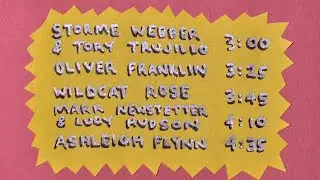 STORME WEBBER
& TORY TRUJILLO 3:00
OLIVER FRANKLIN 3:25
WILDCAT ROSE 3:45
MARK NEWSTETTER
& LUCY HUDSON 4:10
ASHLEIGH FLYNN 4:35